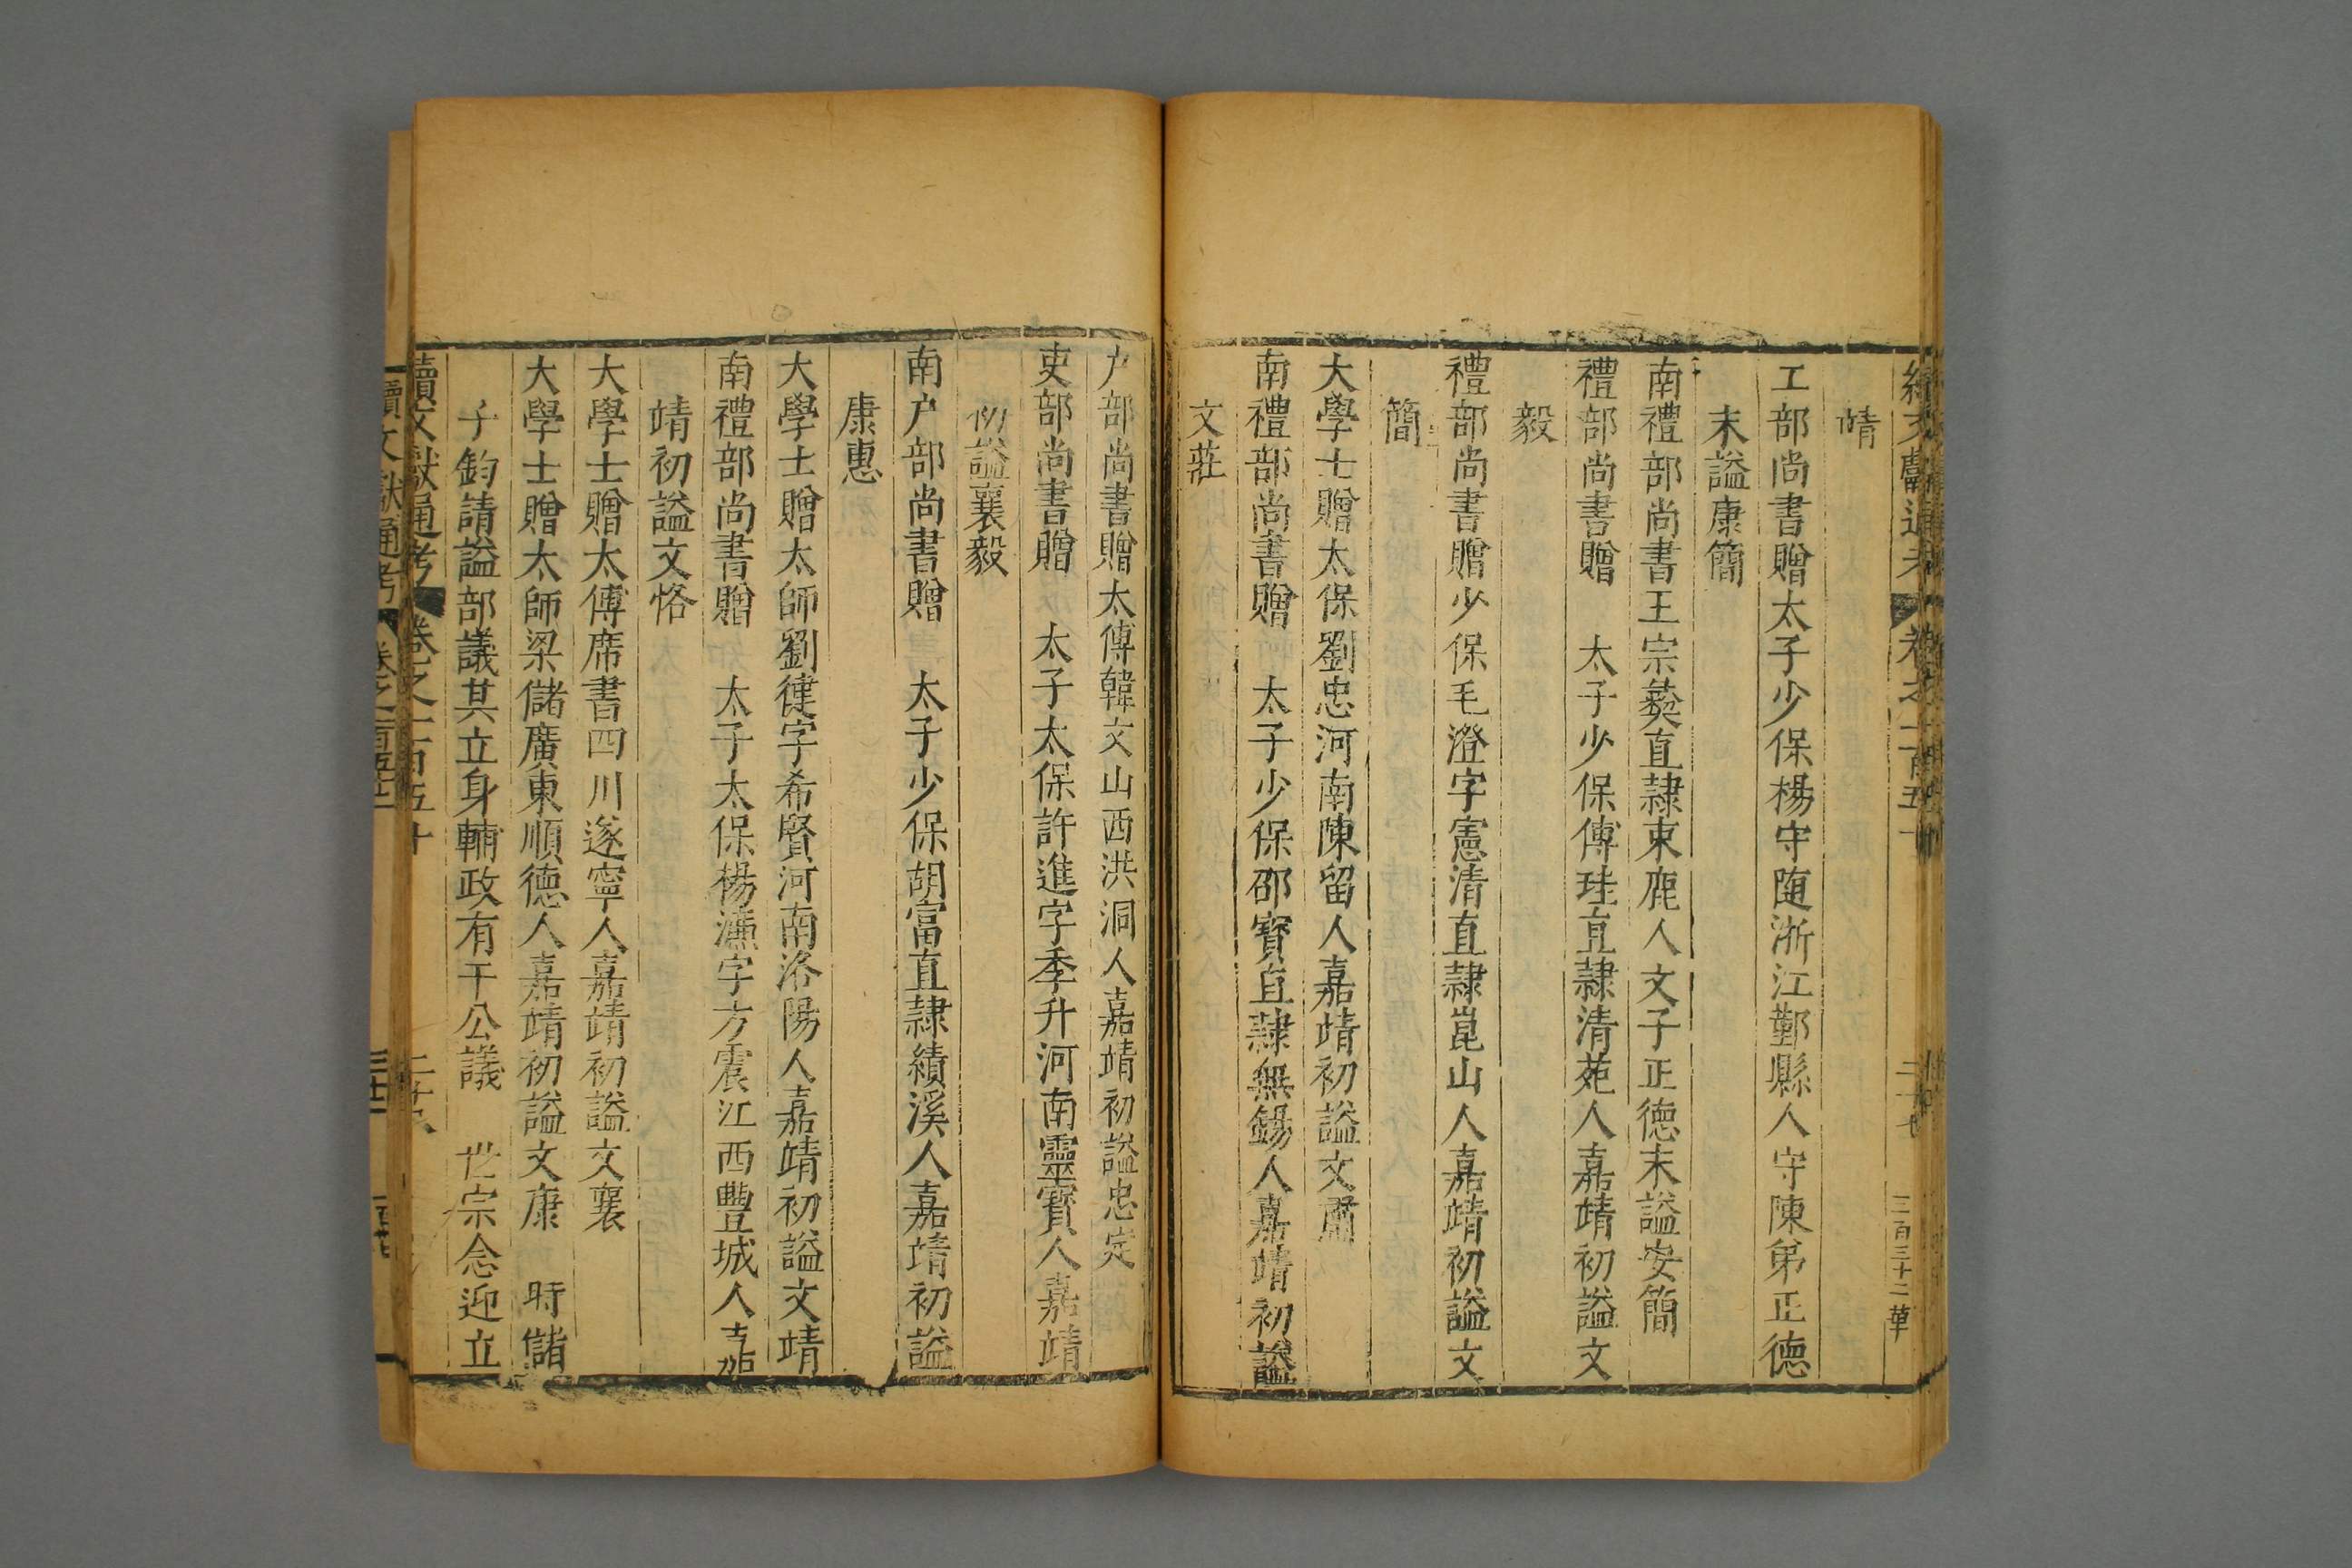 靖
工部尚書贈太子少保楊守随浙江鄞縣人守陳弟正德
末謚康簡
南禮部尚書王宗彛直隷束鹿人文子正德末謚安簡
禮部尚書贈　太子少保傅珪直隷清苑人嘉靖初謚文
毅
禮部尚書贈少保毛澄字憲清直隷崑山人嘉靖初謚文
簡
大學士贈太保劉忠河南陳留人嘉靖初謚文肅
南禮部尚書贈　太子少保邵寳直隷無錫人嘉靖初謚
文莊
户部尚書贈太傅韓文山西洪洞人嘉靖初謚忠定
吏部尚書贈　太子太保許進字季升河南靈寳人嘉靖
初謚襄毅
南户部尚書贈　太子少保胡富直隷績溪人嘉靖初謚
康惠
大學士贈太師劉健字希賢河南洛陽人嘉靖初謚文靖
南禮部尚書贈　太子太保楊濂字方震江西豐城人嘉
靖初謚文恪
大學士贈太傅席書四川遂寧人嘉靖初謚文襄
大學士贈太師梁儲廣東順德人嘉靖初謚文康　時儲
子鈞請謚部議其立身輔政有干公議　世宗念迎立
續文獻通考　卷之一百五十